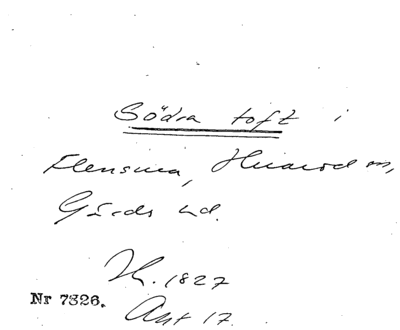 Södra toft i
Flensma, Huarod sn,
Gärds hd.
H. 1827
Nr 7326.
Akt 17.